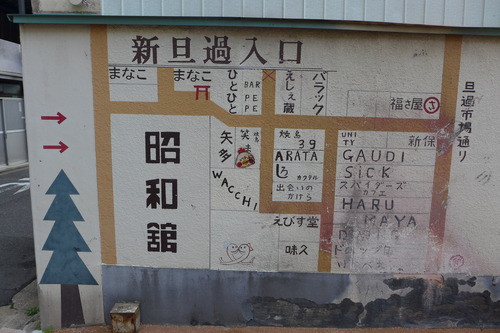 新旦過入口
まなこ
まなこ
ひとひと
BAR
PE
PE
えしぇ蔵
バラック
福さ屋
旦過市場通り
昭和館
矢多
笑味
焼鳥
39
UNI
TY
新保
ARATA
GAUDI
カクテル
SiCK
出会いの
かけら
スパイダーズ
カフェ
WACCHI
HARU
えびす堂
MAYA
味久